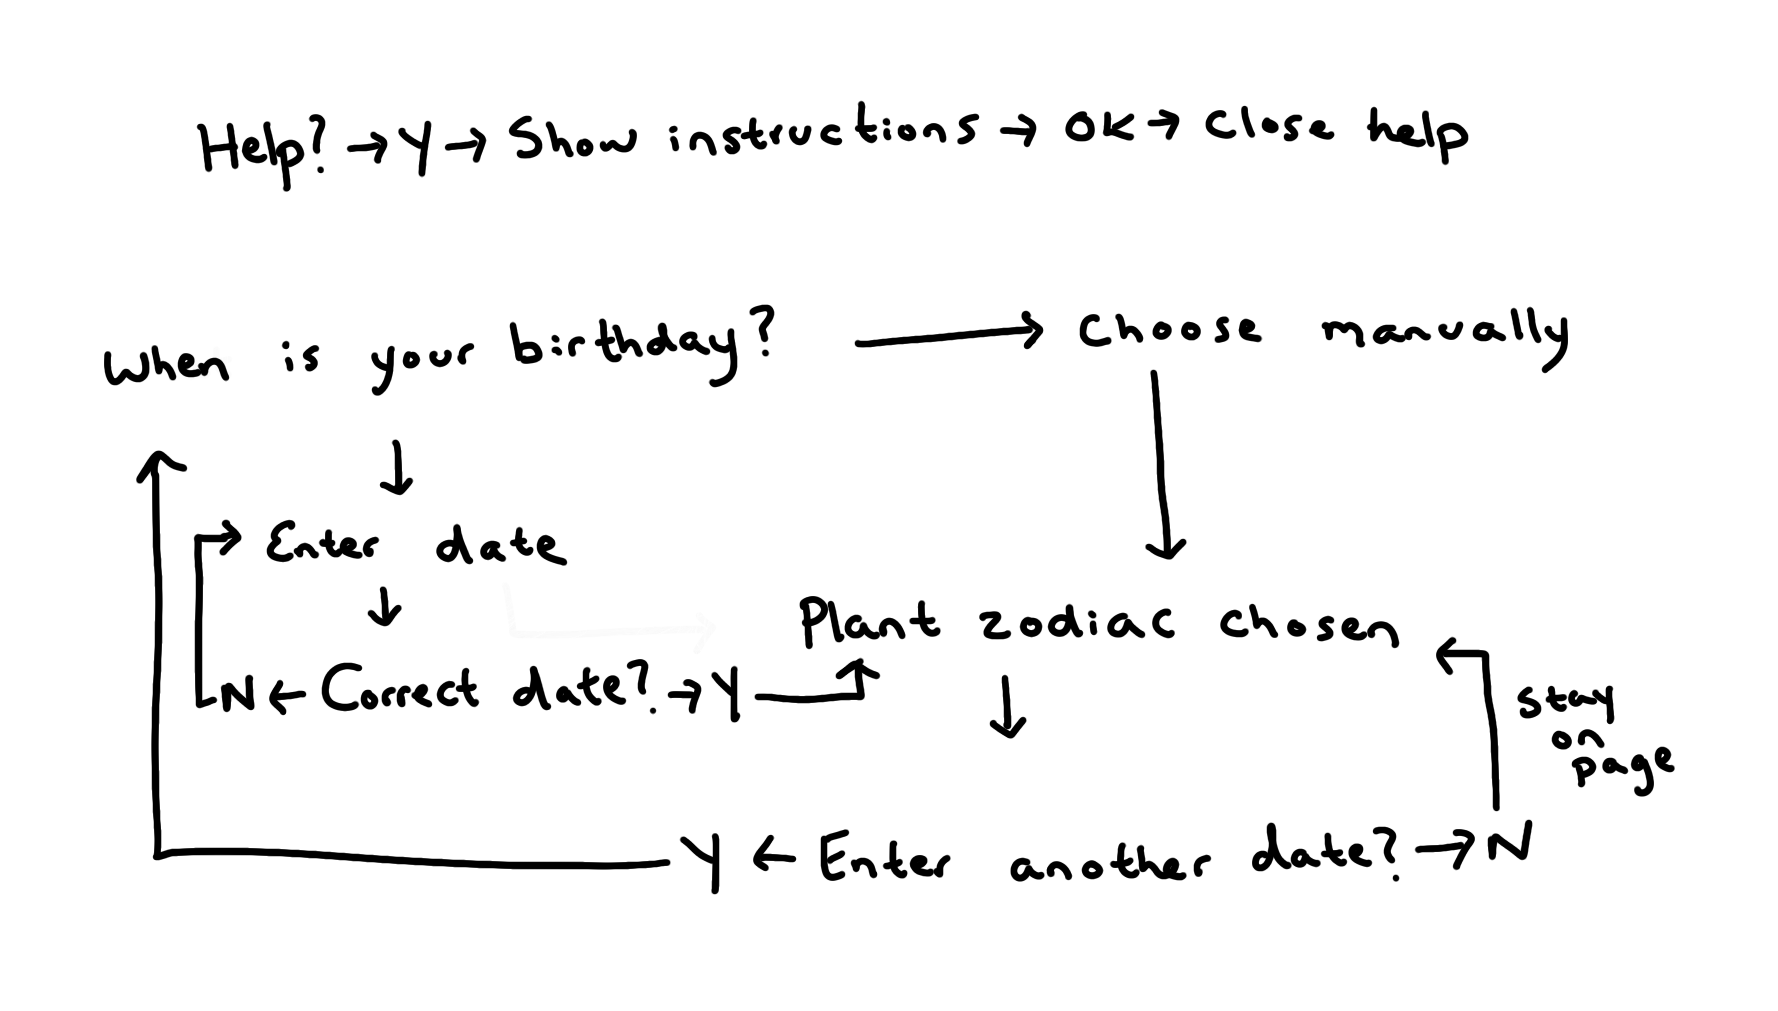 Help? → Y → Show instructions → OK → Close help
When is your birthday? → Choose manually
↓ ↓
Enter date
↓
Plant zodiac chosen
N ← Correct date? → Y
↓
stay
on
page
Y ← Enter another date? → N